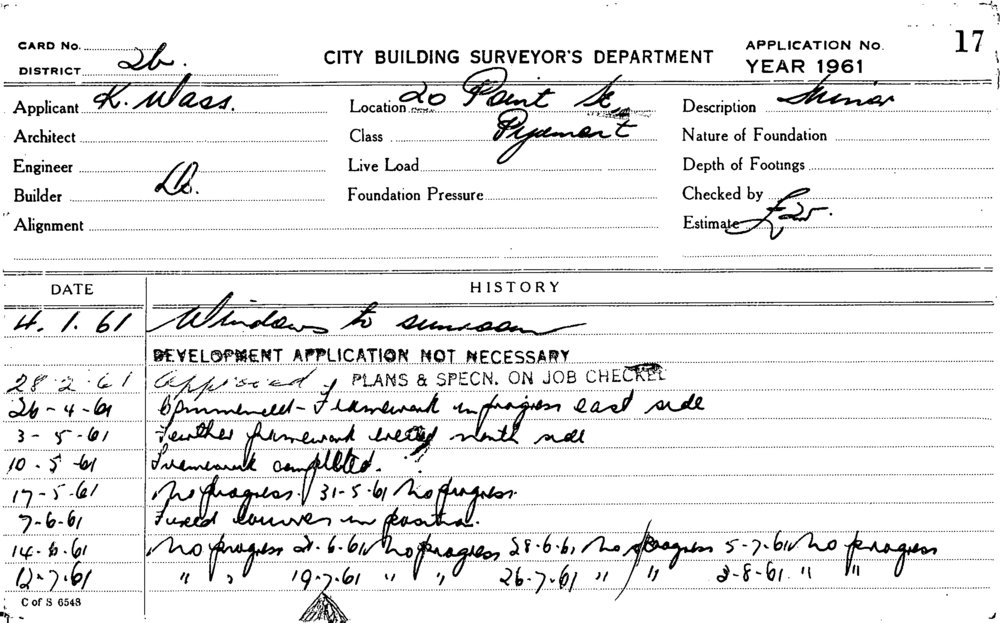 CARD No.
DISTRICT 2b.
CITY BUILDING SURVEYOR'S DEPARTMENT
APPLICATION No. 17
YEAR 1961
Applicant K. Wass. Location 20 Point St Description Minor
Architect Class Pyrmont Nature of Foundation
Engineer Live Load Depth of Footings
Builder Foundation Pressure Checked by
Alignment Estimate £25.
DATE HISTORY
4. 1. 61 Windows to sunroom
DEVELOPMENT APPLICATION NOT NECESSARY
28. 2. 61 Approved PLANS & SPECN. ON JOB CHECKED
26-4-61 Commenced - Framework in progress east side
3-5-61 Further framework erected north side
10.5-61 Framework completed.
17-5-61 No progress. 31-5-61 No progress.
7-6-61 Fixed louvres in position.
14-6-61 No progress 21-6-61 No progress 28-6-61 No progress 5-7-61 No progress
12-7-61 " " 19-7-61 " " 26-7-61 " " 2-8-61. " "
C of S 6548